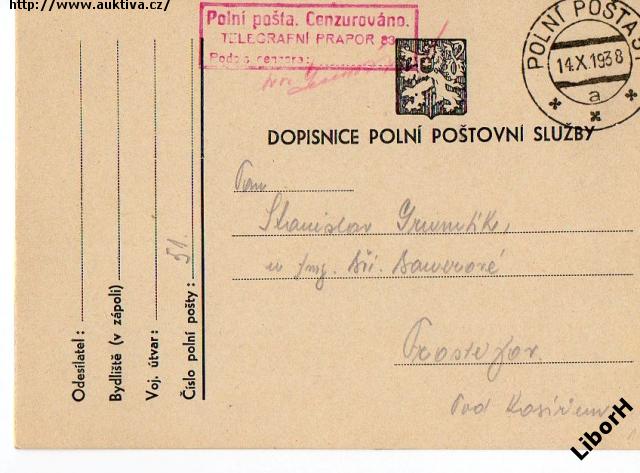 http://www.auktiva.cz/
Polní pošta. Cenzurováno.
TELEGRAFNÍ PRAPOR 83
Podpis censora:
POLNÍ POŠTA 51
14.X.1938
a
DOPISNICE POLNÍ POŠTOVNÍ SLUŽBY
Pan
Stanislav
u Ing.
Prostějov
Pod Kosířem
Odesílatel:
Bydliště (v zápolí)
Voj. útvar:
Číslo polní pošty: 51.
LiborH